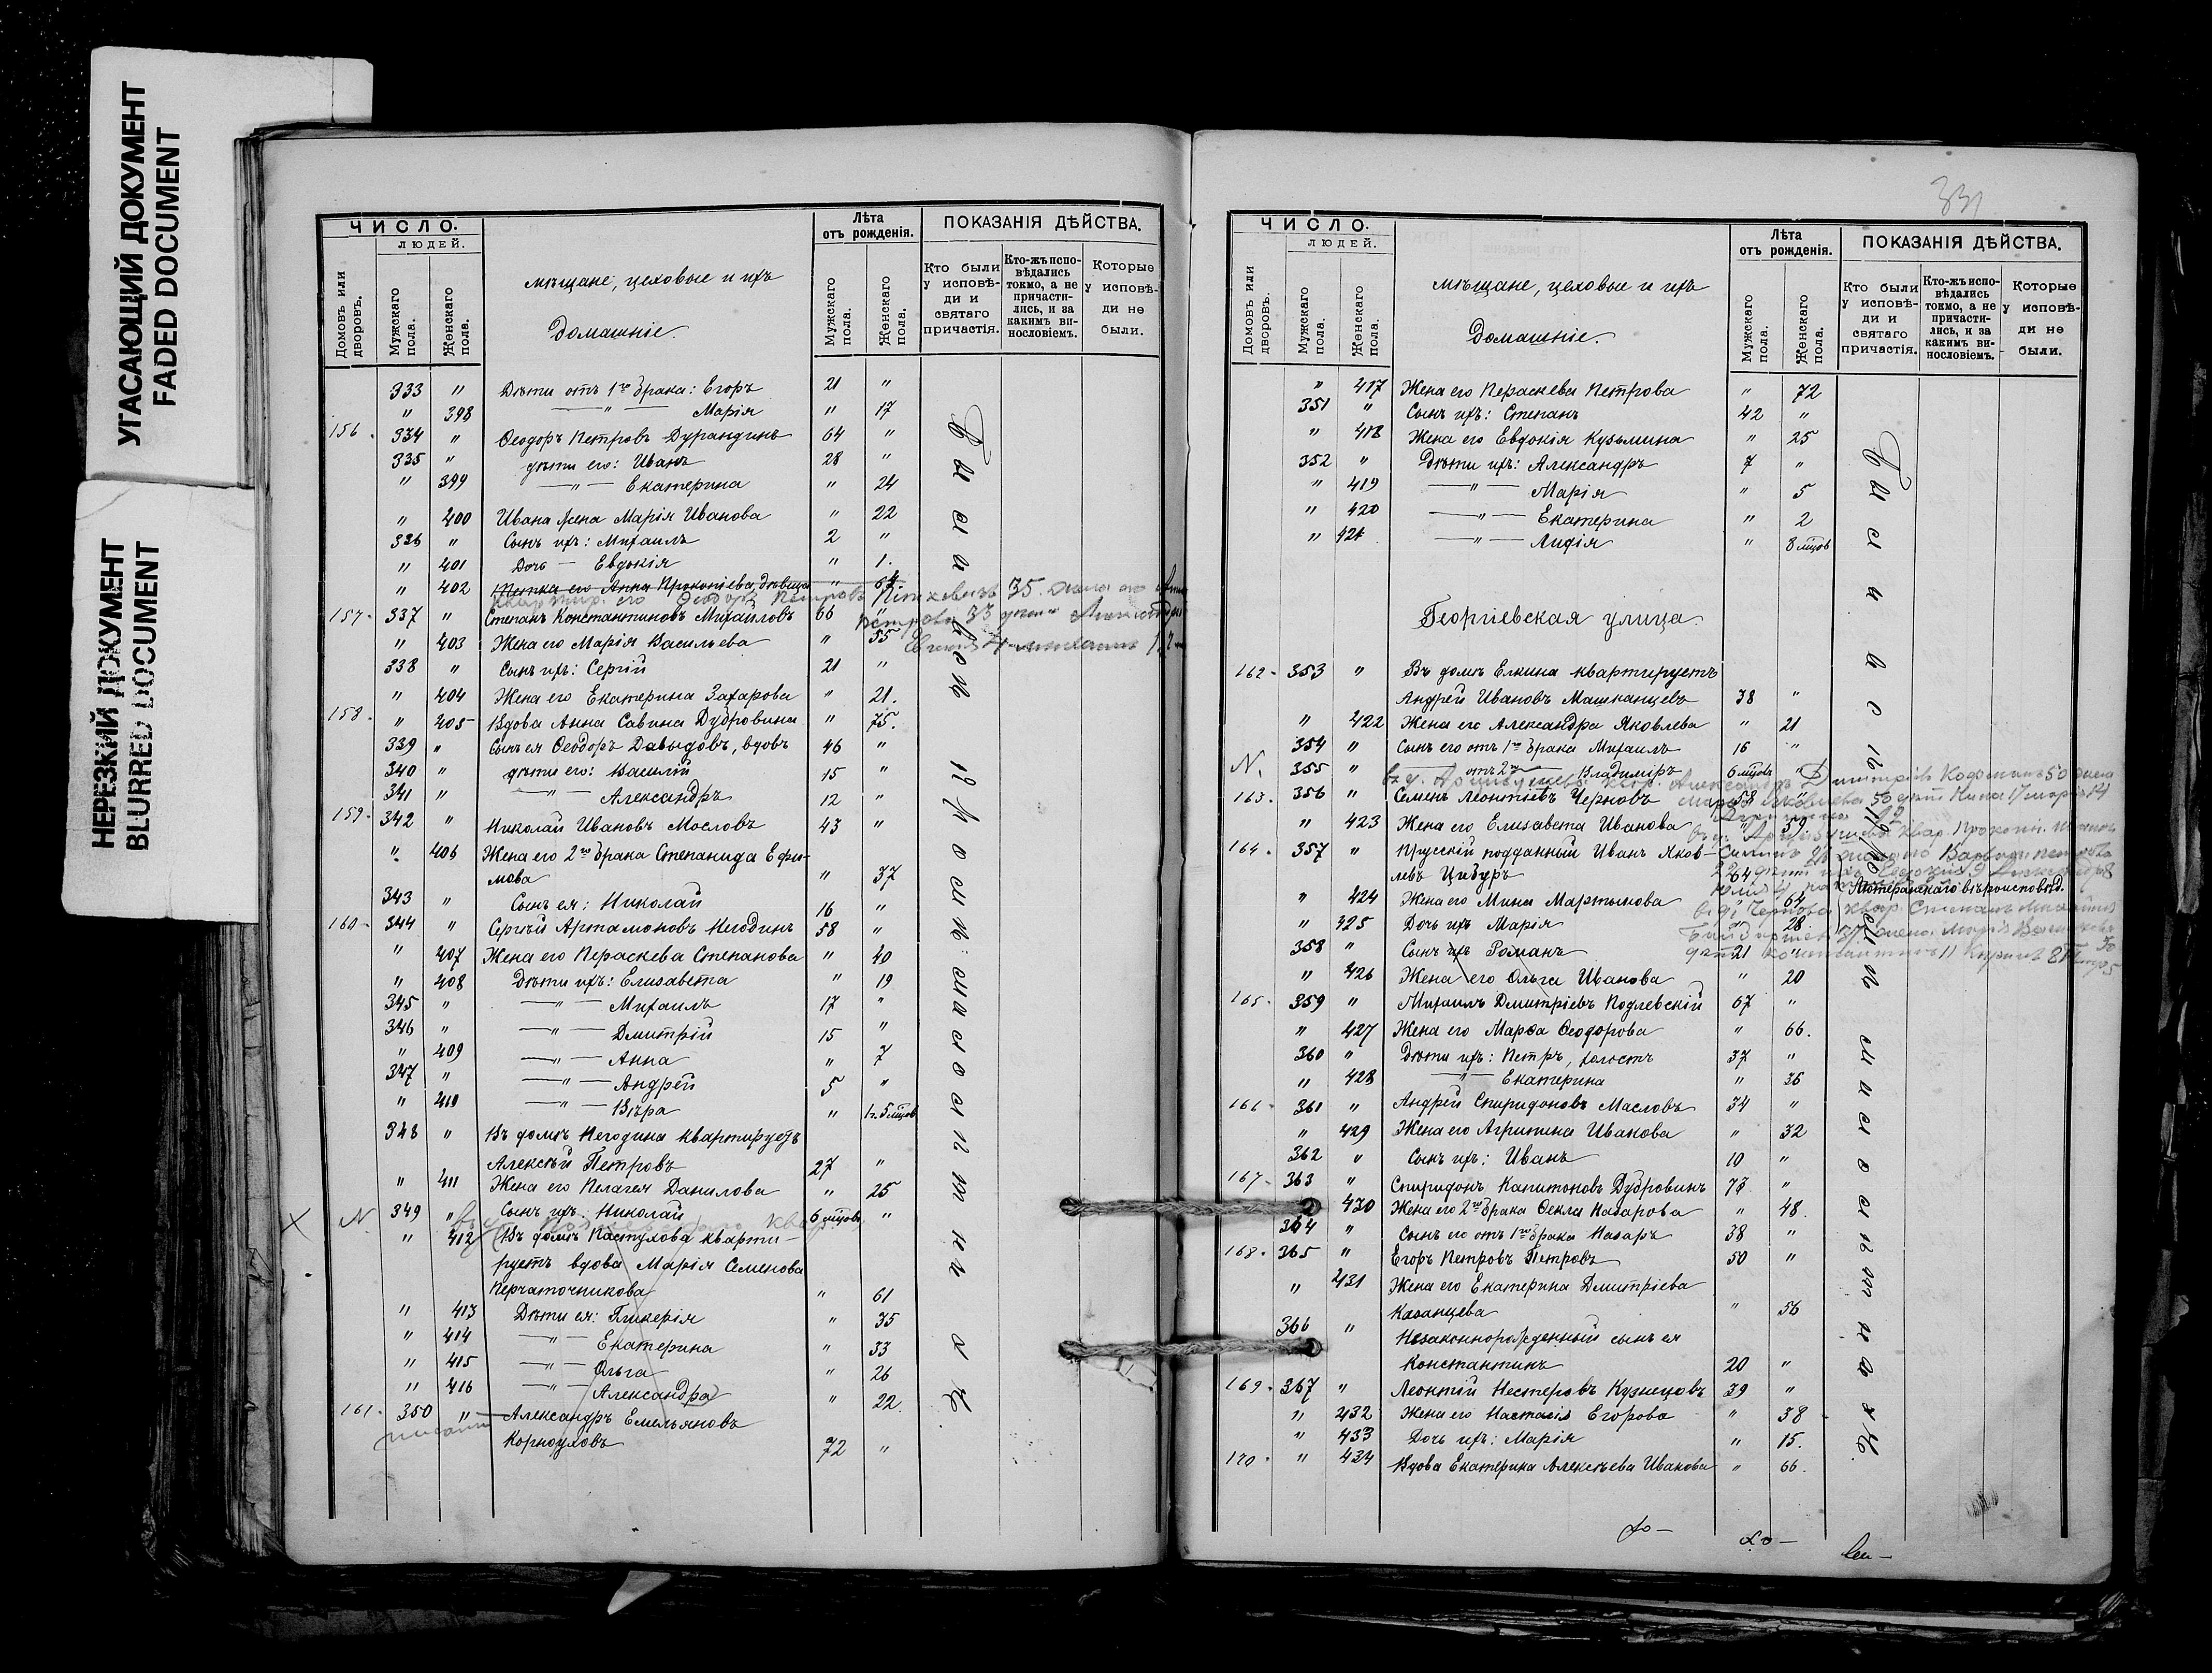 УГАСАЮЩИЙ ДОКУМЕНТ
FADED DOCUMENT
НЕРЕЗКИЙ ДОКУМЕНТ
BLURRED DOCUMENT
ЧИСЛО.
ЛЮДЕЙ.
Домовъ или дворовъ.
Мужскаго пола.
Женскаго пола.
мѣщане, цеховые и ихъ
Домашніе.
Лѣта
отъ рожденія.
Мужскаго пола.
Женскаго пола.
ПОКАЗАНІЯ ДѢЙСТВА.
Кто были у исповѣди и святаго причастія.
Кто-жъ исповѣдались токмо, а не причастились, и за какимъ винословіемъ.
Которые у исповѣди не были.
333 " Дѣти отъ 1го брака: Егоръ 21 "
" 398 — " — Марія " 17
156. 334 " Ѳеодоръ Петровъ Дурандинъ 64 "
335 " дѣти его: Иванъ 28 "
" 399 — " — Екатерина " 24
" 400 Ивана жена Марія Иванова " 22
336 " Сынъ ихъ: Михаилъ 2 "
" 401 Дочь — Евдокія " 1.
" 402 Тетка его Анна Прокопіева, дѣвица "
157. 337 " Степанъ Константиновъ Михайловъ 66 "
" 403 Жена его Марія Васильева " 55
338 " Сынъ ихъ: Сергій 21 "
" 404 Жена его Екатерина Захарова " 21.
158. " 405 Вдова Анна Савина Дубровина " 75.
339 " Сынъ ея Ѳеодоръ Давыдовъ, вдовъ 46 "
340 " дѣти его: Василій 15 "
341 " — " — Александръ 12 "
159. 342 " Николай Ивановъ Мословъ 43 "
" 406 Жена его 2го брака Степанида Ефи-
мова " 37
343 " Сынъ ея: Николай 16 "
160. 344 " Сергѣй Артамоновъ Негодинъ 58 "
" 407 Жена его Пераскева Степанова " 40
" 408 Дѣти ихъ: Елизавета " 19
345 " — " — Михаилъ 17 "
346 " — " — Дмитрій 15 "
" 409 — " — Анна " 7
347 " — " — Андрей 5 "
" 410 — " — Вѣра "
348 " Въ домѣ Негодина квартируетъ
Алексѣй Петровъ 27 "
" 411 Жена его Пелагея Данилова " 25
N 349 " Сынъ ихъ: Николай 6 мцовъ "
" 412 Въ домѣ Пастухова кварти-
руетъ вдова Марія Семенова
Перчаточникова " 61
" 413 Дѣти ея: Гликерія " 35
" 414 — " — Екатерина " 33
" 415 — " — Ольга " 26
" 416 — " — Александра " 22
161. 350 " Александръ Емельяновъ
Корноуховъ 72 "
331
ЧИСЛО.
ЛЮДЕЙ.
Домовъ или дворовъ.
Мужскаго пола.
Женскаго пола.
мѣщане, цеховые и ихъ
Домашніе.
Лѣта
отъ рожденія.
Мужскаго пола.
Женскаго пола.
ПОКАЗАНІЯ ДѢЙСТВА.
Кто были у исповѣди и святаго причастія.
Кто-жъ исповѣдались токмо, а не причастились, и за какимъ винословіемъ.
Которые у исповѣди не были.
" 417 Жена его Пераскева Петрова " 72
351 " Сынъ ихъ: Степанъ 42 "
" 418 Жена его Евдокія Кузьмина " 25
352 " Дѣти ихъ: Александръ 7 "
" 419 — " — Марія " 5
" 420 — " — Екатерина " 2
" 421 — " — Лидія " 8 мцовъ
Георгіевская улица.
162. 353 " Въ домѣ Елкина квартируетъ
Андрей Ивановъ Машканцевъ 38 "
" 422 Жена его Александра Яковлева " 21
354 " Сынъ его отъ 1го брака Михаилъ 16 "
N. 355 " — отъ 2го — Владиміръ 6 мцовъ "
163. 356 " Семенъ Леонтіевъ Черновъ 58 "
" 423 Жена его Елисавета Иванова " 59
164. 357 " Прусскій подданный Иванъ Яков-
левъ Цибуръ 64 Лютеранскаго вѣроисповѣд.
" 424 Жена его Мина Мартынова " 64
" 325 Дочь ихъ Марія " 28
358 " Сынъ ихъ Романъ 21 "
" 426 Жена его Ольга Иванова " 20
165. 359 " Михаилъ Дмитріевъ Подлевскій 67 "
" 427 Жена его Марѳа Ѳеодорова " 66.
360 " Дѣти ихъ: Петръ, холостъ 37 "
" 428 — " — Екатерина " 36
166. 361 " Андрей Спиридоновъ Масловъ 34 "
" 429 Жена его Агрипина Иванова " 32
362 " Сынъ ихъ: Иванъ 10 "
167. 363 " Спиридонъ Капитоновъ Дубровинъ 73 "
" 430 Жена его 2го брака Ѳекла Назарова " 48.
364 " Сынъ его отъ 1го брака Назаръ 38 "
168. 365 " Егоръ Петровъ Петровъ 50 "
" 431 Жена его Екатерина Дмитріева
Казанцева " 56
366 " Незаконнорожденный сынъ ея
Константинъ 20 "
169. 367 " Леонтій Нестеровъ Кузнецовъ 39 "
" 432 Жена его Настасія Егорова " 38
" 433 Дочь ихъ: Марія " 15.
170. " 434 Вдова Екатерина Алексѣева Иванова " 66.